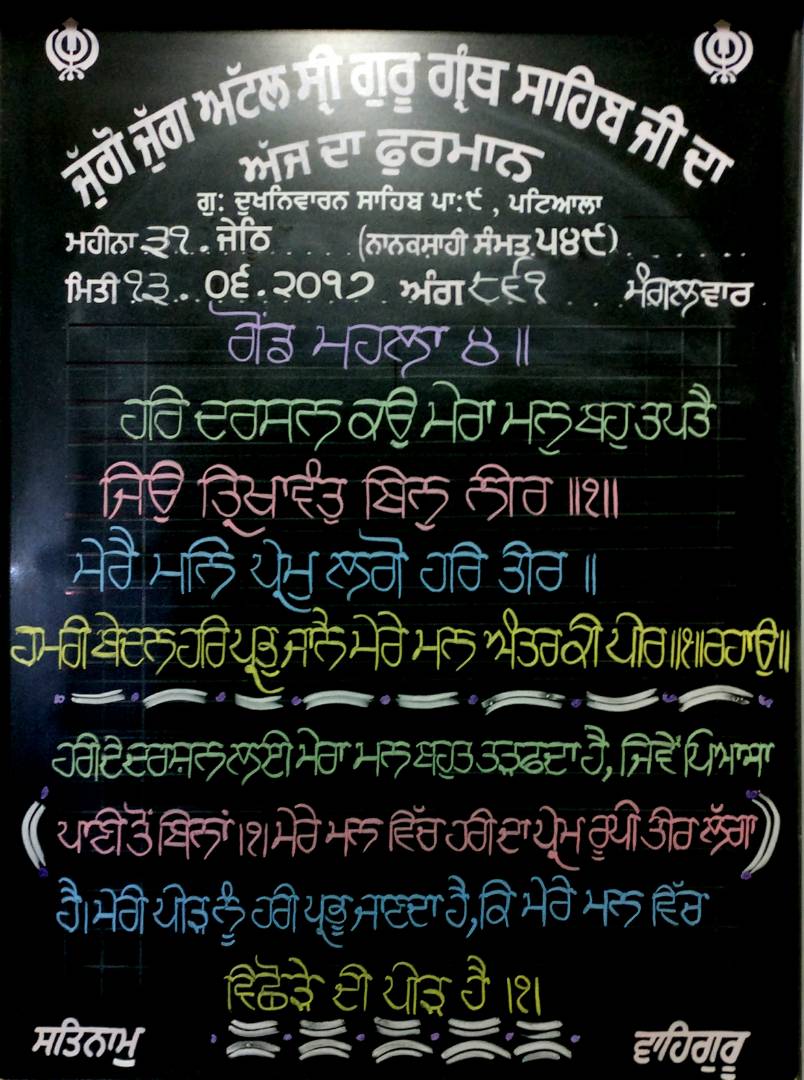 ਜੁੱਗੋ ਜੁੱਗ ਅਟੱਲ ਸ੍ਰੀ ਗੁਰੂ ਗ੍ਰੰਥ ਸਾਹਿਬ ਜੀ ਦਾ
ਅੱਜ ਦਾ ਫੁਰਮਾਨ
ਗੁ: ਦੁਖਨਿਵਾਰਨ ਸਾਹਿਬ ਪਾ:੯ , ਪਟਿਆਲਾ
ਮਹੀਨਾ ੩੧. ਜੇਠਿ (ਨਾਨਕਸ਼ਾਹੀ ਸੰਮਤ੍ਰ ੫੪੯)
ਮਿਤੀ ੧੩. ੦੬.੨੦੧੭ ਅੰਗ ੮੬੧ ਮੰਗਲਵਾਰ
ਗੋਂਡ ਮਹਲਾ ੪॥
ਹਰਿ ਦਰਸਨ ਕਉ ਮੇਰਾ ਮਨੁ ਬਹੁ ਤਪਤੈ
ਜਿਉ ਤ੍ਰਿਖਾਵੰਤੁ ਬਿਨੁ ਨੀਰ ॥੧॥
ਮੇਰੈ ਮਨਿ ਪ੍ਰੇਮੁ ਲਗੋ ਹਰਿ ਤੀਰ ॥
ਹਮਰੀ ਬੇਦਨ ਹਰਿ ਪ੍ਰਭੁ ਜਾਨੈ ਮੇਰੇ ਮਨ ਅੰਤਰ ਕੀ ਪੀਰ॥੧॥ਰਹਾਉ॥
ਹਰੀ ਦੇ ਦਰਸ਼ਨ ਲਈ ਮੇਰਾ ਮਨ ਬਹੁਤ ਤੜਫਦਾ ਹੈ, ਜਿਵੇਂ ਪਿਆਸਾ
ਪਾਣੀ ਤੋਂ ਬਿਨਾਂ।੧। ਮੇਰੇ ਮਨ ਵਿੱਚ ਹਰੀ ਦਾ ਪ੍ਰੇਮ ਰੂਪੀ ਤੀਰ ਲੱਗਾ
ਹੈ। ਮੇਰੀ ਪੀੜ ਨੂੰ ਹਰੀ ਪ੍ਰਭੂ ਜਾਣਦਾ ਹੈ, ਕਿ ਮੇਰੇ ਮਨ ਵਿੱਚ
ਵਿਛੋੜੇ ਦੀ ਪੀੜ ਹੈ ।੧।
ਸਤਿਨਾਮੁ ਵਾਹਿਗੁਰੂ